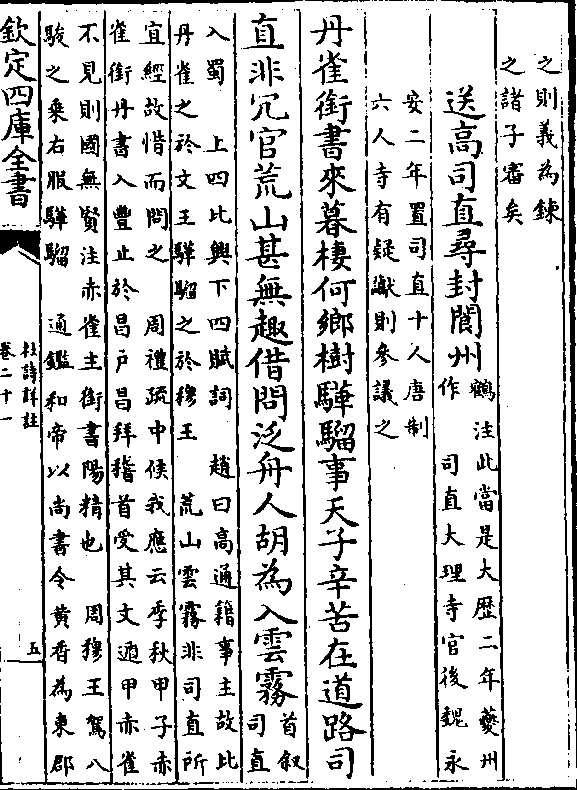 之則義為錬
之諸子審矣
送高司直尋封閬州
鶴注此當是大歴二年夔州
作　司直大理寺官後魏永
安二年置司直十人唐制
六人寺有疑讞則參議之
丹雀銜書來暮棲何鄉樹驊騮事天子辛苦在道路司
直非冗官荒山甚無趣借問泛舟人胡為入雲霧
首叙
司直
入蜀　上四比興下四賦詞　趙曰高通籍事主故比
丹雀之於文王驊騮之於穆王　荒山雲霧非司直所
宜經故惜而問之　周禮疏中候我應云季秋甲子赤
雀銜丹書入豐止於昌户昌拜稽首受其文遁甲赤雀
不見則國無賢注赤雀主銜書陽精也　周穆王駕八
駿之乗右服驊騮　通鑑和帝以尚書令黄香為東郡
欽定四庫全書
杜詩詳註
卷二十一
五